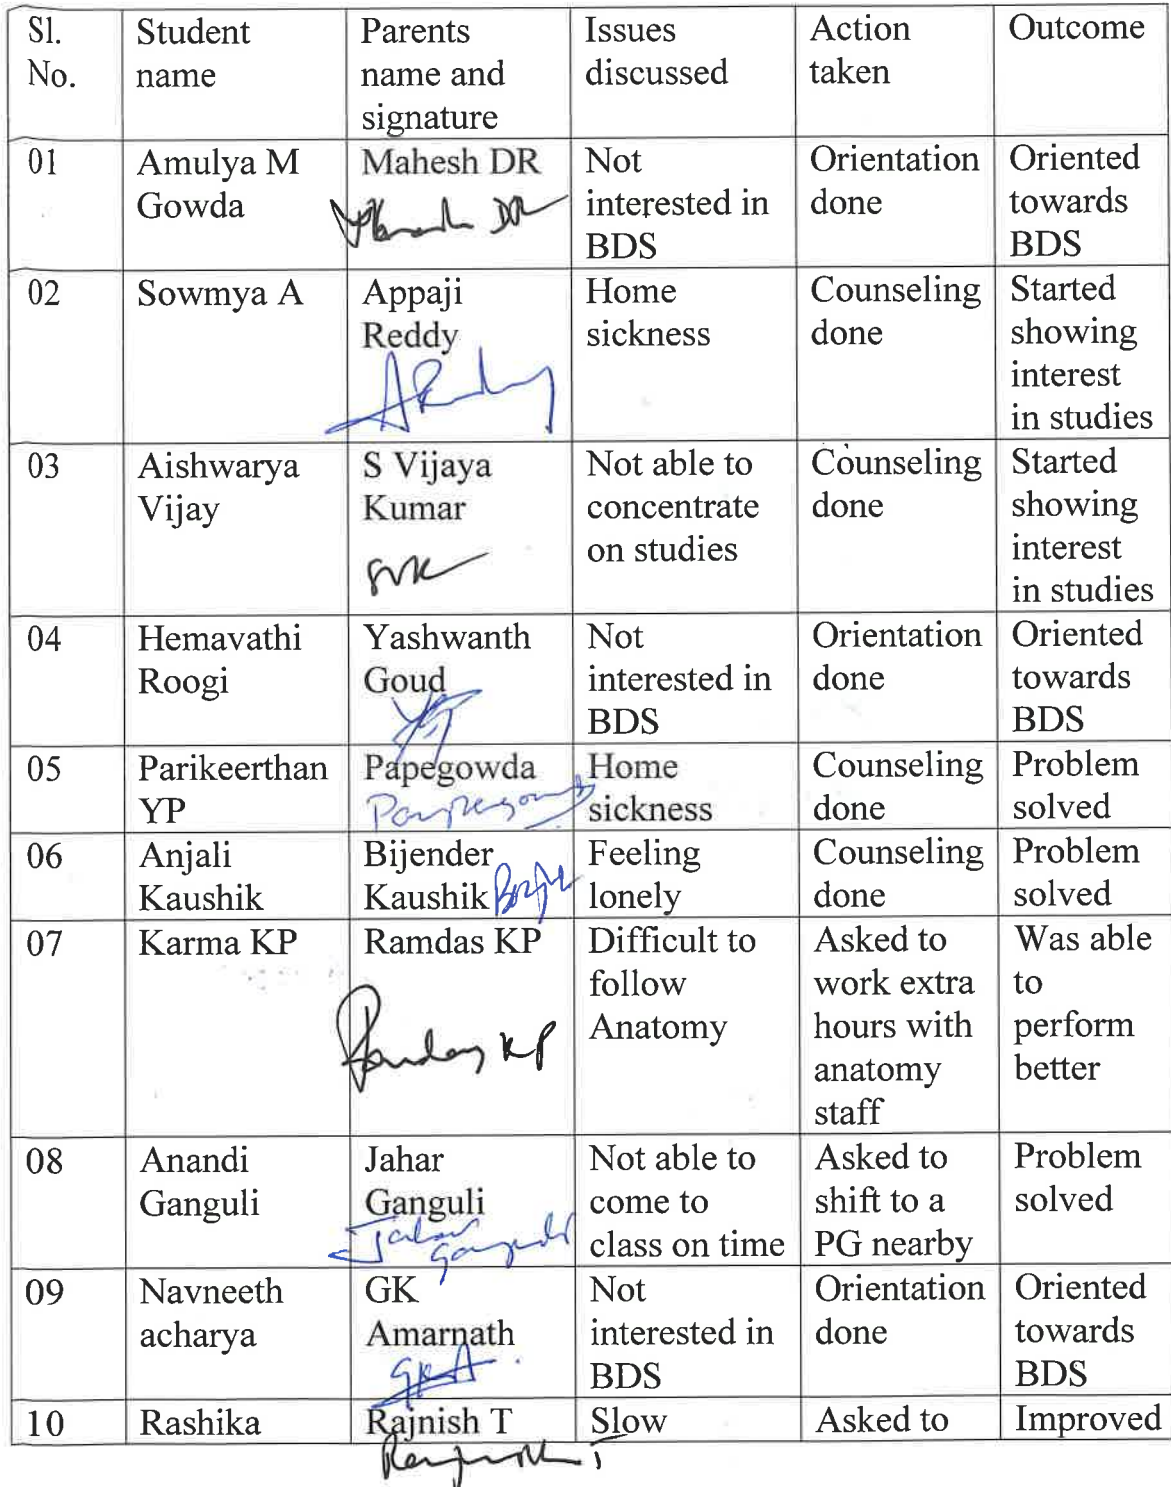 Sl. No. Student name Parents name and signature Issues discussed Action taken Outcome
01 Amulya M Gowda Mahesh DR Not interested in BDS Orientation done Oriented towards BDS
02 Sowmya A Appaji Reddy Home sickness Counseling done Started showing interest in studies
03 Aishwarya Vijay S Vijaya Kumar SVK Not able to concentrate on studies Counseling done Started showing interest in studies
04 Hemavathi Roogi Yashwanth Goud Not interested in BDS Orientation done Oriented towards BDS
05 Parikeerthan YP Papegowda Home sickness Counseling done Problem solved
06 Anjali Kaushik Bijender Kaushik Feeling lonely Counseling done Problem solved
07 Karma KP Ramdas KP Difficult to follow Anatomy Asked to work extra hours with anatomy staff Was able to perform better
08 Anandi Ganguli Jahar Ganguli Not able to come to class on time Asked to shift to a PG nearby Problem solved
09 Navneeth acharya GK Amarnath GKA Not interested in BDS Orientation done Oriented towards BDS
10 Rashika Rajnish T Slow Asked to Improved